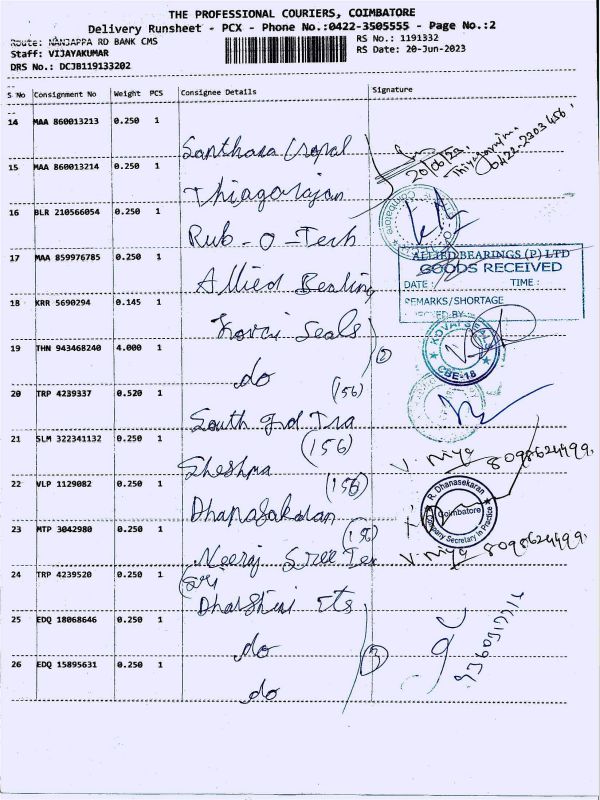 THE PROFESSIONAL COURIERS, COIMBATORE
Delivery Runsheet - PCX - Phone No.:0422-3505555 - Page No.:2
Route: NANJAPPA RD BANK CMS
RS No.: 1191332
Staff: VIJAYAKUMAR
RS Date: 20-Jun-2023
DRS No.: DCJB119133202
S No Consignment No Weight PCS Consignee Details Signature
14 MAA 860013213 0.250 1 Santhana Gopal
20/06/23
Thiyagarajan
0422-2303456
15 MAA 860013214 0.250 1 Thiagarajan
16 BLR 210566054 0.250 1 Rub-O-Tech
17 MAA 859976785 0.250 1 Allied Bearing
ALLIED BEARINGS (P) LTD
GOODS RECEIVED
DATE : TIME :
REMARKS/SHORTAGE
18 KRR 5690294 0.145 1 Kovai Seals
KOVAI SEALS
CBE-18
19 THN 943468240 4.000 1 do
2
20 TRP 4239337 0.520 1 South Ind Tra (156)
21 SLM 322341132 0.250 1 Sheshma (156)
V. Niya 8098624499
22 VLP 1129082 0.250 1 Dhanasakaran (156)
R. Dhanasekaran
Coimbatore
Company Secretary in Practice
23 MTP 3042980 0.250 1 Neeraj Sree Tex (156)
V. Niya 8098624499
24 TRP 4239520 0.250 1 Sri Dharshini Ets
25 EDQ 18068646 0.250 1 do
3
26 EDQ 15895631 0.250 1 do